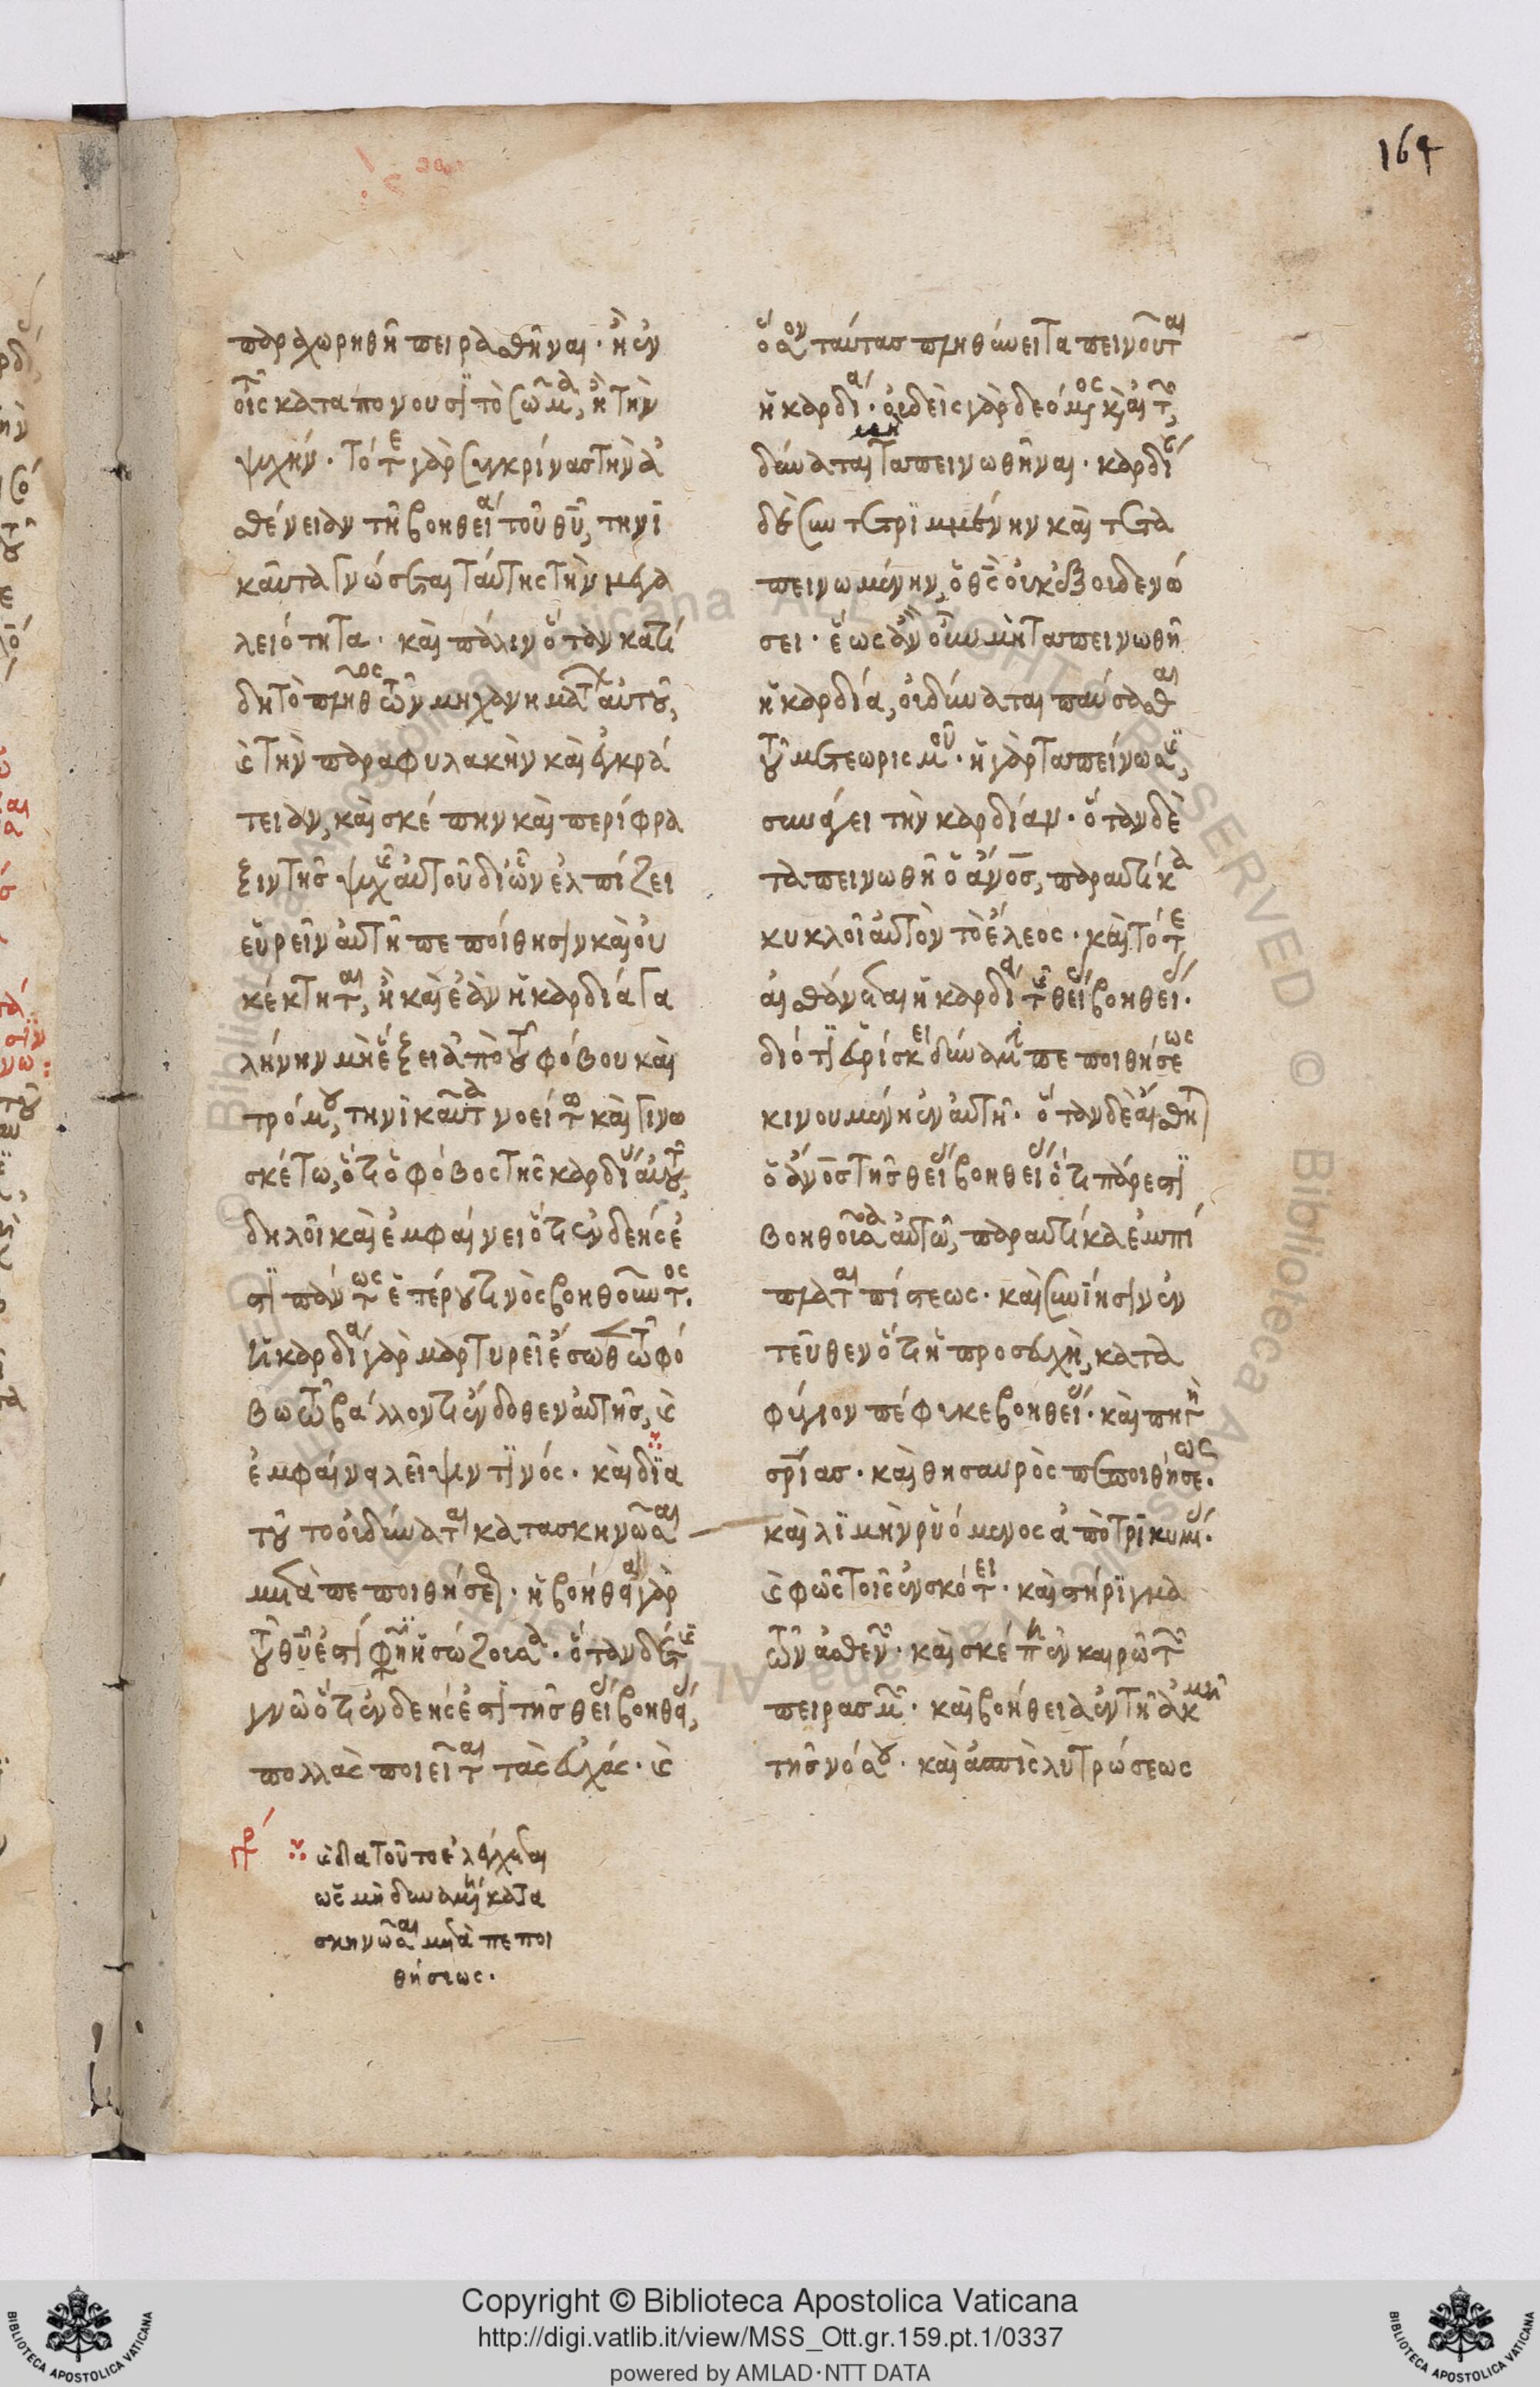 164
παραχωρηθῆ πειρασθῆναι· ἢ ἐν
τοῖς καταπονουσι τὸ σῶμα, ἢ τὴν
ψυχήν· τότε γὰρ συγκρίνας τὴν ἀ
σθένειαν τῆ βοηθεία τοῦ θυ, τηνι
καῦτα γνώσεται ταύτης τὴν μεγα
λειότητα· καὶ πάλιν ὅταν κατί
δη τὸ πλῆθος τῶν μηχανημάτων αὐτοῦ,
καὶ τὴν παραφυλακὴν καὶ ἐγκρά
τειαν, καὶ σκέπην καὶ περίφρα
ξιν τῆς ψυχῆς αὐτοῦ δι ὧν ἐλπίζει
εὑρεῖν αὐτῆ πεποίθησιν καὶ οὐ
κέκτηται, ἢ καὶ ἐὰν ἡ καρδία γα
λήνην μὴ ἕξει ἀπὸ τοῦ φόβου καὶ
τρόμου, τηνικαῦτα νοείτω καὶ γινω
σκέτω, ὅτι ὁ φόβος τῆς καρδίας αὐτοῦ,
δηλοῖ καὶ ἐμφαίνει ὅτι ἐνδεής ἐ
στι πάντως ἑτέρου τινὸς βοηθοῦντος.
ἡ καρδία γὰρ μαρτυρεῖ ἔσωθεν τῶ φό
βω τῶ βάλλοντι ἔνδοθεν αὐτῆς, καὶ
ἐμφαίνει λεῖψιν τινός· καὶ δια
τοῦτο οὐ δύναται κατασκηνῶσαι
μετὰ πεποιθήσεως· ἡ βοήθεια γὰρ
τοῦ θυ ἐστί φησιν ἡ σώζουσα· ὅταν δέ τις
γνῶ ὅτι ἐνδεής ἐστι τῆς θείας βοηθείας,
πολλὰς ποιεῖται τὰς εὐχάς· καὶ
καὶ δια τοῦτο ἐλέγχεται
ὡς μὴ δυναμένη κατα
σκηνῶσαι μετὰ πεποι
θήσεως.
ὅσον ταύτας πληθύνει ταπεινοῦται
ἡ καρδία· οὐδεὶς γὰρ δεόμενος καὶ αἰτῶν,
δύναται μὴ ταπεινωθῆναι· καρδίαν
δὲ συντετριμμένην καὶ τετα
πεινωμένην, ὁ θς οὐκ ἐξουδενώ
σει· ἕως ἂν οὖν μὴ ταπεινωθῆ
ἡ καρδία, οὐ δύναται παύσασθαι
τοῦ μετεωρισμοῦ· ἡ γὰρ ταπείνωσις,
συνάγει τὴν καρδίαν· ὅταν δὲ
ταπεινωθῆ ὁ ἄνος, παραυτίκα
κυκλοῖ αὐτὸν τὸ ἔλεος· καὶ τότε
αἰσθάνεται ἡ καρδία τῆς θείας βοηθείας·
διότι εὑρίσκει δύναμίν πεποιθήσεως
κινουμένην ἐν αὐτῆ· ὅταν δὲ αἴσθηται
ὁ ἄνος τῆς θείας βοηθείας ὅτι πάρεστι
βοηθοῦσα αὐτῶ, παραυτίκα ἐμπί
πλαται πίστεως· καὶ συνίησιν ἐν
τεῦθεν ὅτι ἡ προσευχὴ, κατα
φύγιον πέφυκε βοηθείας· καὶ πηγὴ
σριας· καὶ θησαυρὸς πεποιθήσεως·
καὶ λιμὴν ῥυόμενος ἀπὸ τρικυμίας·
καὶ φῶς τοῖς ἐν σκότει· καὶ στήριγμα
τῶν ἀσθενῶν· καὶ σκέπη ἐν καιρῶ τῶν
πειρασμῶν· καὶ βοήθεια ἐν τῆ ἀκμῆ
τῆς νόσου· καὶ ἀσπὶς λυτρώσεως
Copyright © Biblioteca Apostolica Vaticana
http://digi.vatlib.it/view/MSS_Ott.gr.159.pt.1/0337
powered by AMLAD·NTT DATA